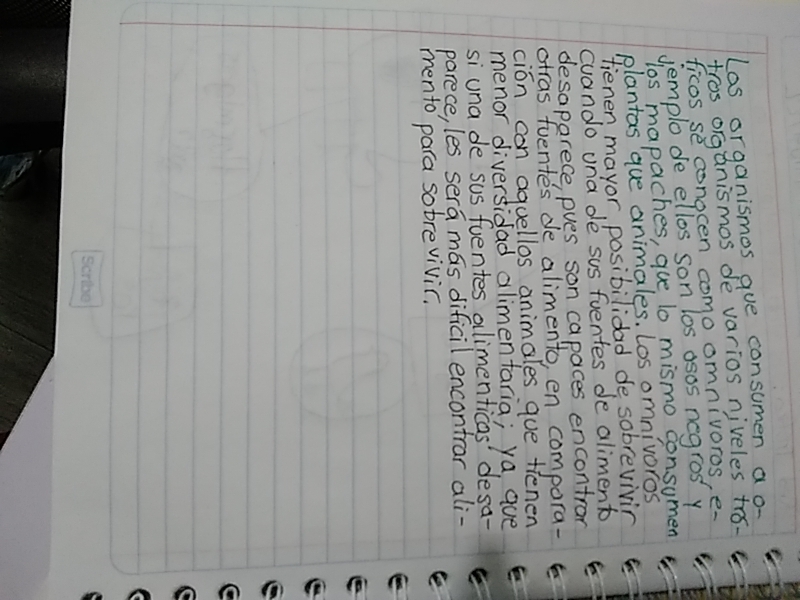 Los organismos que consumen a o-
tros organismos de varios niveles tró-
ficos se conocen como omnívoros, e-
jemplo de ellos son los osos negros y
los mapaches, que lo mismo consumen
plantas que animales. Los omnívoros
tienen mayor posibilidad de sobrevivir
cuando una de sus fuentes de alimento
desaparece, pues son capaces encontrar
otras fuentes de alimento, en compara-
ción con aquellos animales que tienen
menor diversidad alimentaria; ya que
si una de sus fuentes alimenticas desa-
parece, les será más difícil encontrar ali-
mento para sobrevivir.
Scribe